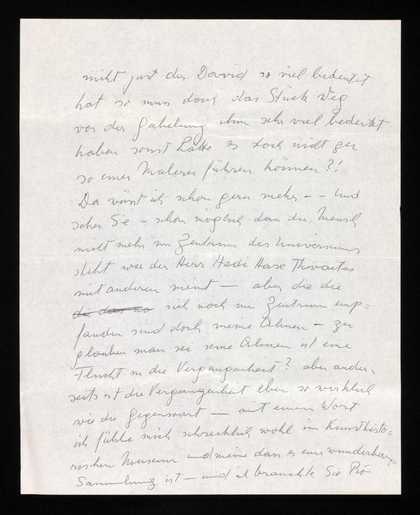 nicht just der David so viel bedeutet
hat so muss doch das Stück Weg
vor der Gabelung ihm sehr viel bedeutet
haben sonst hätte es doch nicht zu
so einer Malerei führen können?!
Da wüsst ich schon gern mehr - - Und
sehen Sie - schon möglich dass der Mensch
nicht mehr im Zentrum des Universums
steht wie der Herr Hedi Hase
mit anderen meint — aber die die
sich noch im Zentrum emp=
fanden sind doch meine Ahnen - zu
glauben man sei seine Ahnen ist eine
Flucht in die Vergangenheit? aber ander=
seits ist die Vergangenheit eben so wirklich
wie die Gegenwart — mit einem Wort
ich fühle mich schrecklich wohl im Kunsthisto=
rischen Museum - und meine dass es eine wunderbare
Sammlung ist - und brauchte Sie